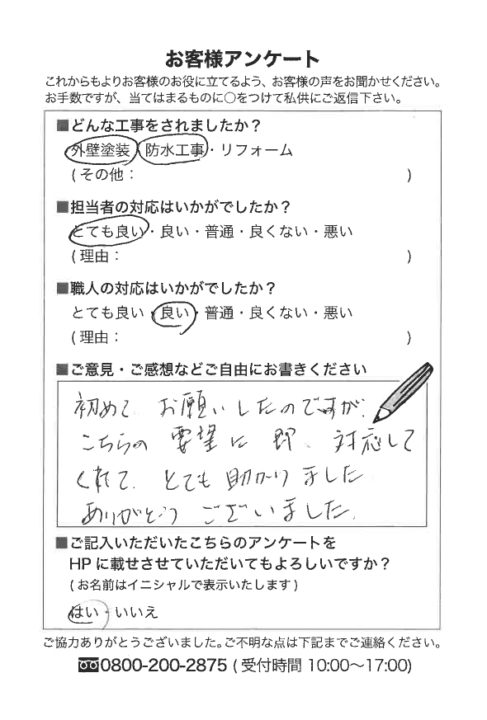 お客様アンケート
これからもよりお客様のお役に立てるよう、お客様の声をお聞かせください。
お手数ですが、当てはまるものに○をつけて私供にご返信下さい。
■どんな工事をされましたか？
外壁塗装・防水工事・リフォーム
(その他： )
■担当者の対応はいかがでしたか？
とても良い・良い・普通・良くない・悪い
(理由： )
■職人の対応はいかがでしたか？
とても良い・良い・普通・良くない・悪い
(理由： )
■ご意見・ご感想などご自由にお書きください
初めて、お願いしたのですが、
こちらの要望に即、対応して
くれて、とても助かりました
ありがとうございました。
■ご記入いただいたこちらのアンケートを
HPに載せさせていただいてもよろしいですか？
(お名前はイニシャルで表示いたします)
はい・いいえ
ご協力ありがとうございました。ご不明な点は下記までご連絡ください。
0800-200-2875 (受付時間 10:00～17:00)